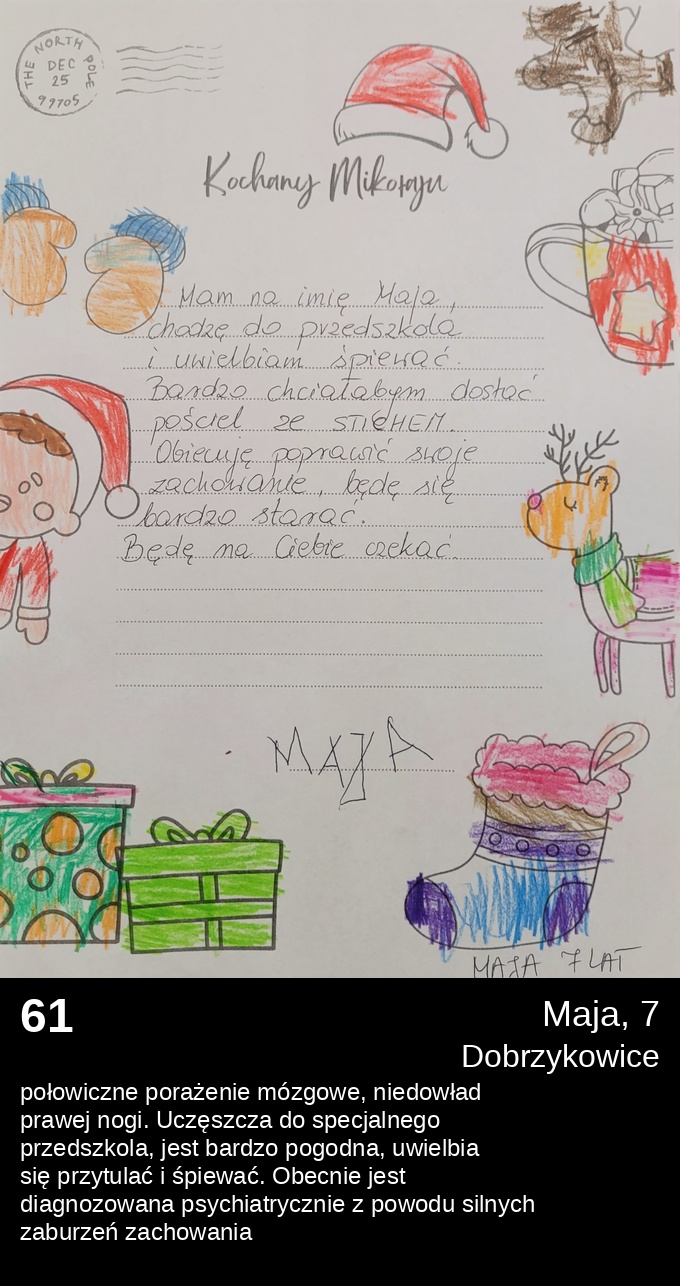 THE NORTH POLE
DEC
25
99705
Kochany Mikołaju
Mam na imię Maja,
chodzę do przedszkola
i uwielbiam śpiewać.
Bardzo chciałabym dostać
pościel ze STICHEM.
Obiecuję poprawić swoje
zachowanie, będę się
bardzo starać.
Będę na Ciebie czekać.
MAJA
MAJA 7 LAT
61
Maja, 7
Dobrzykowice
połowiczne porażenie mózgowe, niedowład
prawej nogi. Uczęszcza do specjalnego
przedszkola, jest bardzo pogodna, uwielbia
się przytulać i śpiewać. Obecnie jest
diagnozowana psychiatrycznie z powodu silnych
zaburzeń zachowania